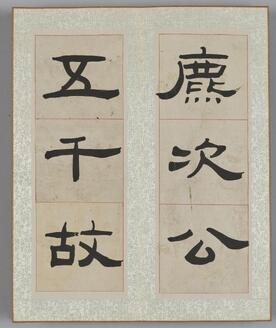 麃次公
五千故